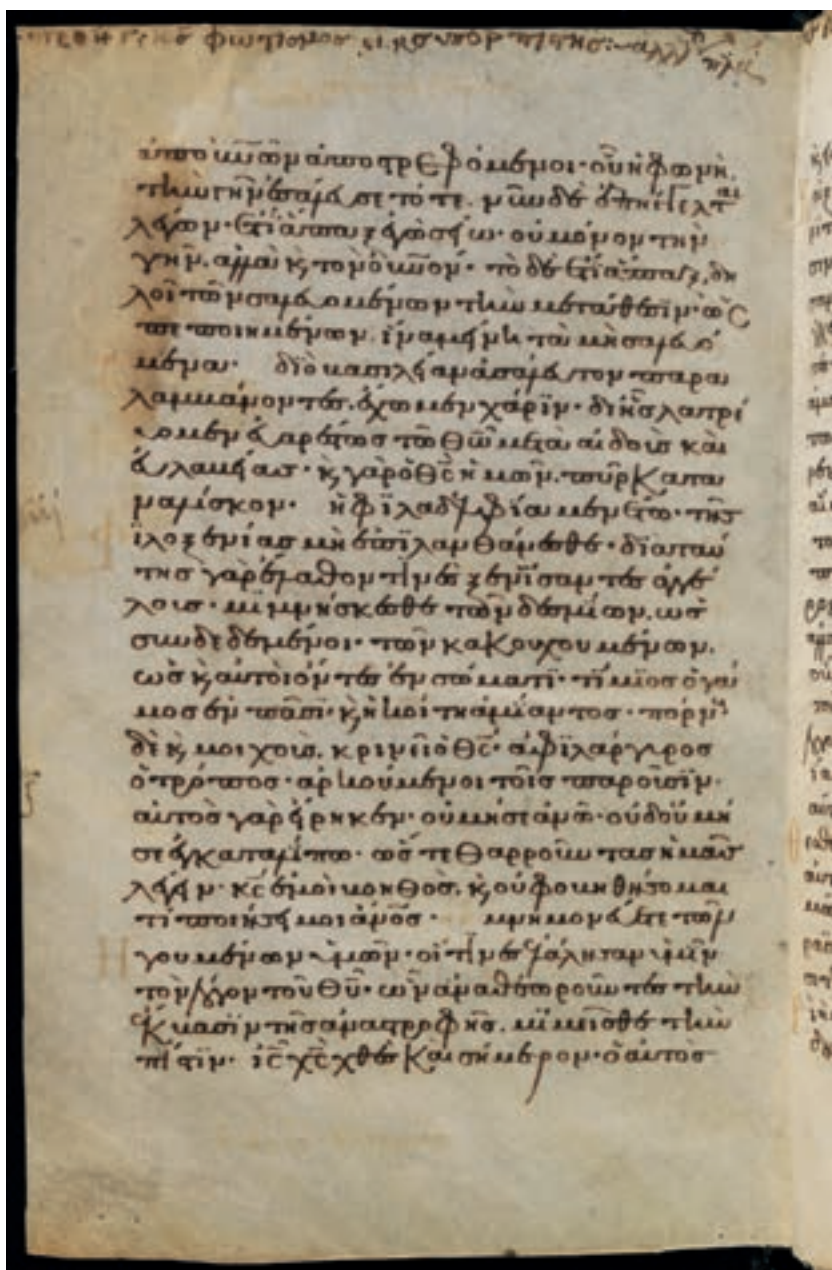 φωτισμος
ἀπο οὐνῶν ἀποστρεφόμενοι· οὗ ἡ φωνὴ
τὴν γῆν ἐσάλευσε τότε. νῦν δὲ ἐπήγγελται
λέγων· ἔτι ἅπαξ ἐγὼ σείω· οὐ μόνον τὴν
γῆν. ἀλλὰ κ τὸν οὐνόν· τὸ δὲ ἔτι ἅπαξ, δη
λοῖ τῶν σαλευομένων τὴν μετάθεσιν· ὡς
πεποιημένων. ἵνα μείνη τὰ μὴ σαλευό
μενα· διὸ βασιλείαν ἀσάλευτον παρα
λαμβάνοντες. ἔχωμεν χάριν· δι ἧς λατρεύ
ομεν εὐαρέστως τῶ θῶ μετὰ αἰδοῦς καὶ
εὐλαβείας· κ γὰρ ὁ θς ἡμῶν. πῦρ κατα
ναλίσκον· ἡ φιλαδελφία μενέτω· τῆς
ιλοξενίας μὴ ἐπιλανθάνεσθε· διὰ ταύ
της γὰρ ἔλαθον τινὲς ξενίσαντες ἀγγέ
λους· μιμνήσκεσθε τῶν δεσμίων. ὡς
συνδεδεμένοι· τῶν κακουχουμένων.
ὡς κ αὐτοὶ ὄντες ἐν σώματι· τίμιος ὁ γά
μος ἐν πᾶσι· κ ἡ κοίτη ἀμίαντος· πόρν
δὲ κ μοιχοὺς. κρινεῖ ὁ θς· ἀφιλάργυρος
ὁ τρόπος· ἀρκούμενοι τοῖς παροῦσιν·
αὐτὸς γὰρ εἴρηκεν· οὐ μή σε ἀνῶ· οὐδ οὐ μή
σε ἐγκαταλίπω· ὥστε θαρροῦντας ἡμᾶς
λέγειν· κς ἐμοὶ βοηθὸς. κ οὐ φοβηθήσομαι
τί ποιήσει μοι ἀνος· μνημονεύετε τῶν
γουμένων ὑμῶν· οἵτινες ἐλάλησαν ὑμῖν
τὸν λόγον τοῦ θυ· ὧν ἀναθεωροῦντες τὴν
ἔκβασιν τῆς ἀναστροφῆς. μιμεῖσθε τὴν
πίστιν· ις χς χθὲς καὶ σήμερον· ὁ αὐτὸς